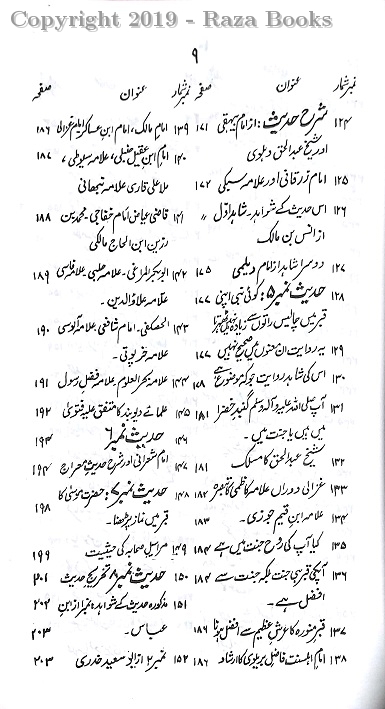 Copyright 2019 - Raza Books
۹
نمبر شمار عنوان صفحہ
۱۲۴ شرح حدیث: از امام بیہقی ۱۷۱
اور شیخ عبدالحق دہلوی
۱۲۵ امام زرقانی اور علامہ سبکی ۱۷۲
۱۲۶ اس حدیث کے شواہد۔ شاہد اول ”
از انس بن مالک
۱۲۷ دوسرا شاہد از امام دیلمی ۱۷۵
۱۲۸ حدیث نمبر ۵: کوئی نبی اپنی ۱۷۷
قبر میں چالیس راتوں سے زیادہ نہیں ٹھہرتا
۱۲۹ یہ روایت ان معنوں میں صحیح نہیں ۱۷۷
۱۳۰ اس کی شاہد روایت جو کہ موضوع ہے ۱۷۸
۱۳۱ آپ صلی اللہ علیہ وآلہ وسلم گنبد خضرا ۱۸۱
میں ہیں یا جنت میں۔
۱۳۲ شیخ عبدالحق کا مسلک ۱۸۱
۱۳۳ غزالی دوراں علامہ کاظمی کا تبصرہ ۱۸۲
۱۳۴ علامہ ابن قیم جوزی۔ ۱۸۳
۱۳۵ کیا آپ کی روح جنت میں ہے ۱۸۴
۱۳۶ آپکی قبر ہی جنت بلکہ جنت سے ۱۸۴
افضل ہے۔
۱۳۷ قبر منورہ کا عرش عظیم سے افضل ہونا ۱۸۶
۱۳۸ امام اہلسنت فاضل بریلوی کا ارشاد ۱۸۶
نمبر شمار عنوان صفحہ
۱۳۹ امام مالک، امام ابن عساکر، امام غزالی ۱۸۶
۱۴۰ امام ابن عقیل حنبلی، علامہ سیوطی، ۱۸۷
ملا علی قاری علامہ نبھانی
۱۴۱ قاضی عیاض امام خفاجی، محمد بن ۱۸۸
رزین ابن الحاج مالکی
۱۴۲ ابوبکر المراغی۔ علامہ حلبی علامہ فارسی ۱۸۹
علامہ علاؤالدین۔
۱۴۳ الحصکفی۔ امام شافعی علامہ آلوسی ۱۹۰
علامہ خرپوتی۔
۱۴۴ علامہ بحر العلوم علامہ فضل رسول ۱۹۱
۱۴۵ علمائے دیوبند کا متفق علیہ فتوی ۱۹۲
۱۴۶ حدیث نمبر ۶ ۱۹۴
۱۴۷ امام شعرانی اور شرح حدیث معراج ۱۹۴
۱۴۸ حدیث نمبر ۷: حضرت موسیٰ کا ۱۹۸
قبر میں نماز پڑھنا۔
۱۴۹ مراسیل صحابہ کی حیثیت ۱۹۹
۱۵۰ حدیث نمبر ۸ تخریج حدیث ۲۰۱
۱۵۱ مذکورہ حدیث کے شواہد نمبر ۱ از ابن ۲۰۲
عباس۔ ۲۰۳
۱۵۲ نمبر ۲ از ابو سعید خدری ۲۰۳